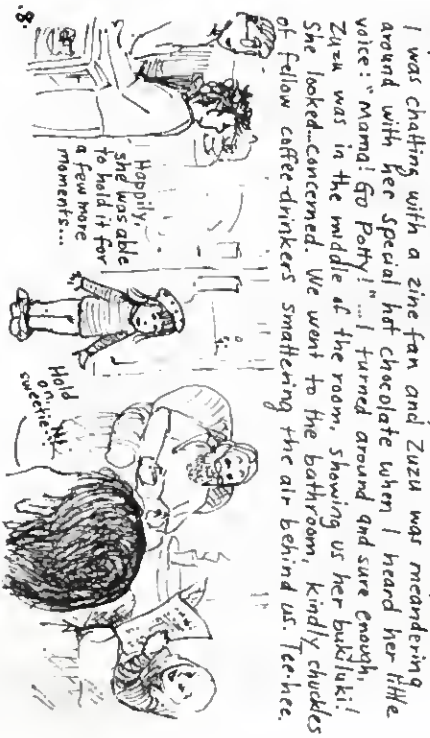 I was chatting with a zine fan and Zuzu was meandering
around with her special hot chocolate when I heard her little
voice: "Mama! Go Potty!"... I turned around and sure enough,
Zuzu was in the middle of the room, showing us her bukiluki!
She looked...concerned. We went to the bathroom, kindly chuckles
of fellow coffee-drinkers smattering the air behind us. Tee-hee.
Happily,
she was able
to hold it for
a few more
moments...
Hold
on,
sweetie!
.8.